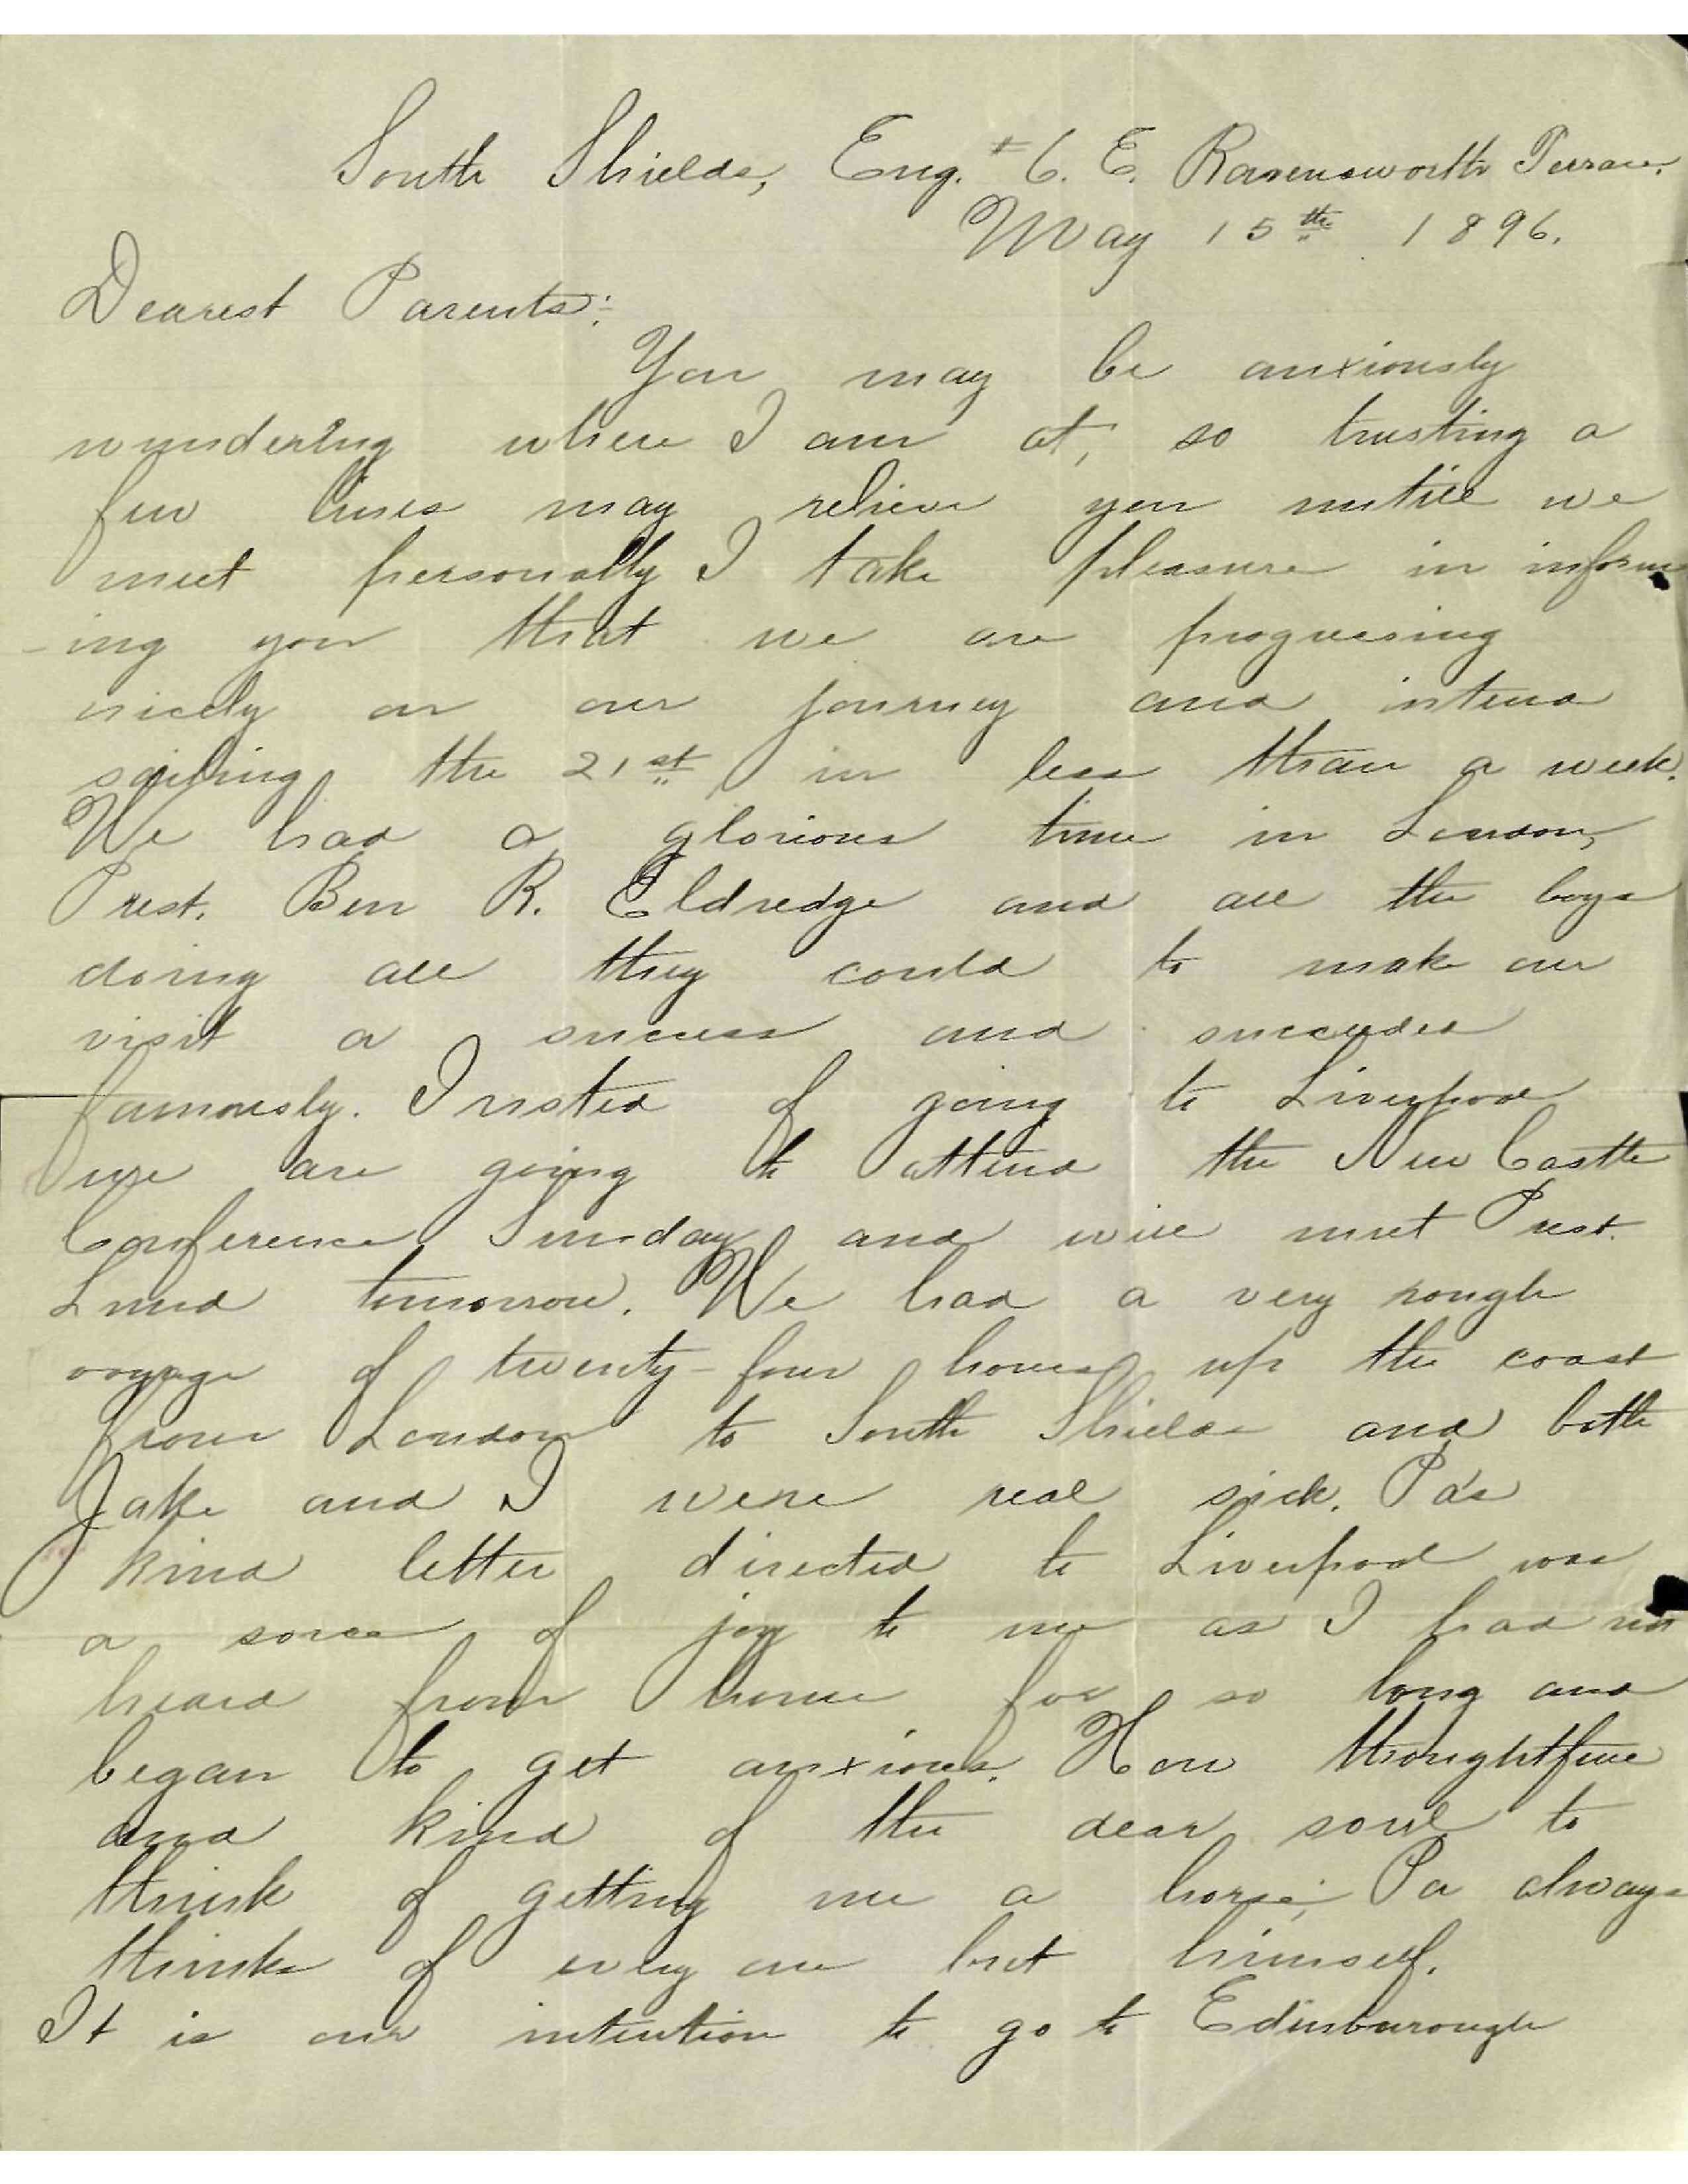 South Shields, Eng. # 6. E. Ravensworth Terrace.
May 15th 1896.
Dearest Parents:
You may be anxiously
wundering where I am at, so trusting a
few lines may relieve you untill we
meet personally I take pleasure in inform
-ing you that we are progressing
nicely on our journey and intend
sailing the 21st in less than a week.
We had a glorious time in London,
Prest. Ben R. Eldredge and all the boys
doing all they could to make our
visit a success and succeeded
famously. Insted of going to Liverpool
we are going to attend the New Castle
Conference Sunday and will meet Prest.
Lund tomorrow. We had a very rough
voyage of twenty-four hours up the coast
from London to South Shields and both
Jake and I were real sick. Pa's
kind letter directed to Liverpool was
a sorce of joy to me as I had not
heard from home for so long and
began to get anxious. How thoughtfull
and kind of the dear soul to
think of getting me a horse; Pa always
thinks of every one but himself.
It is our intention to go to Edinburough